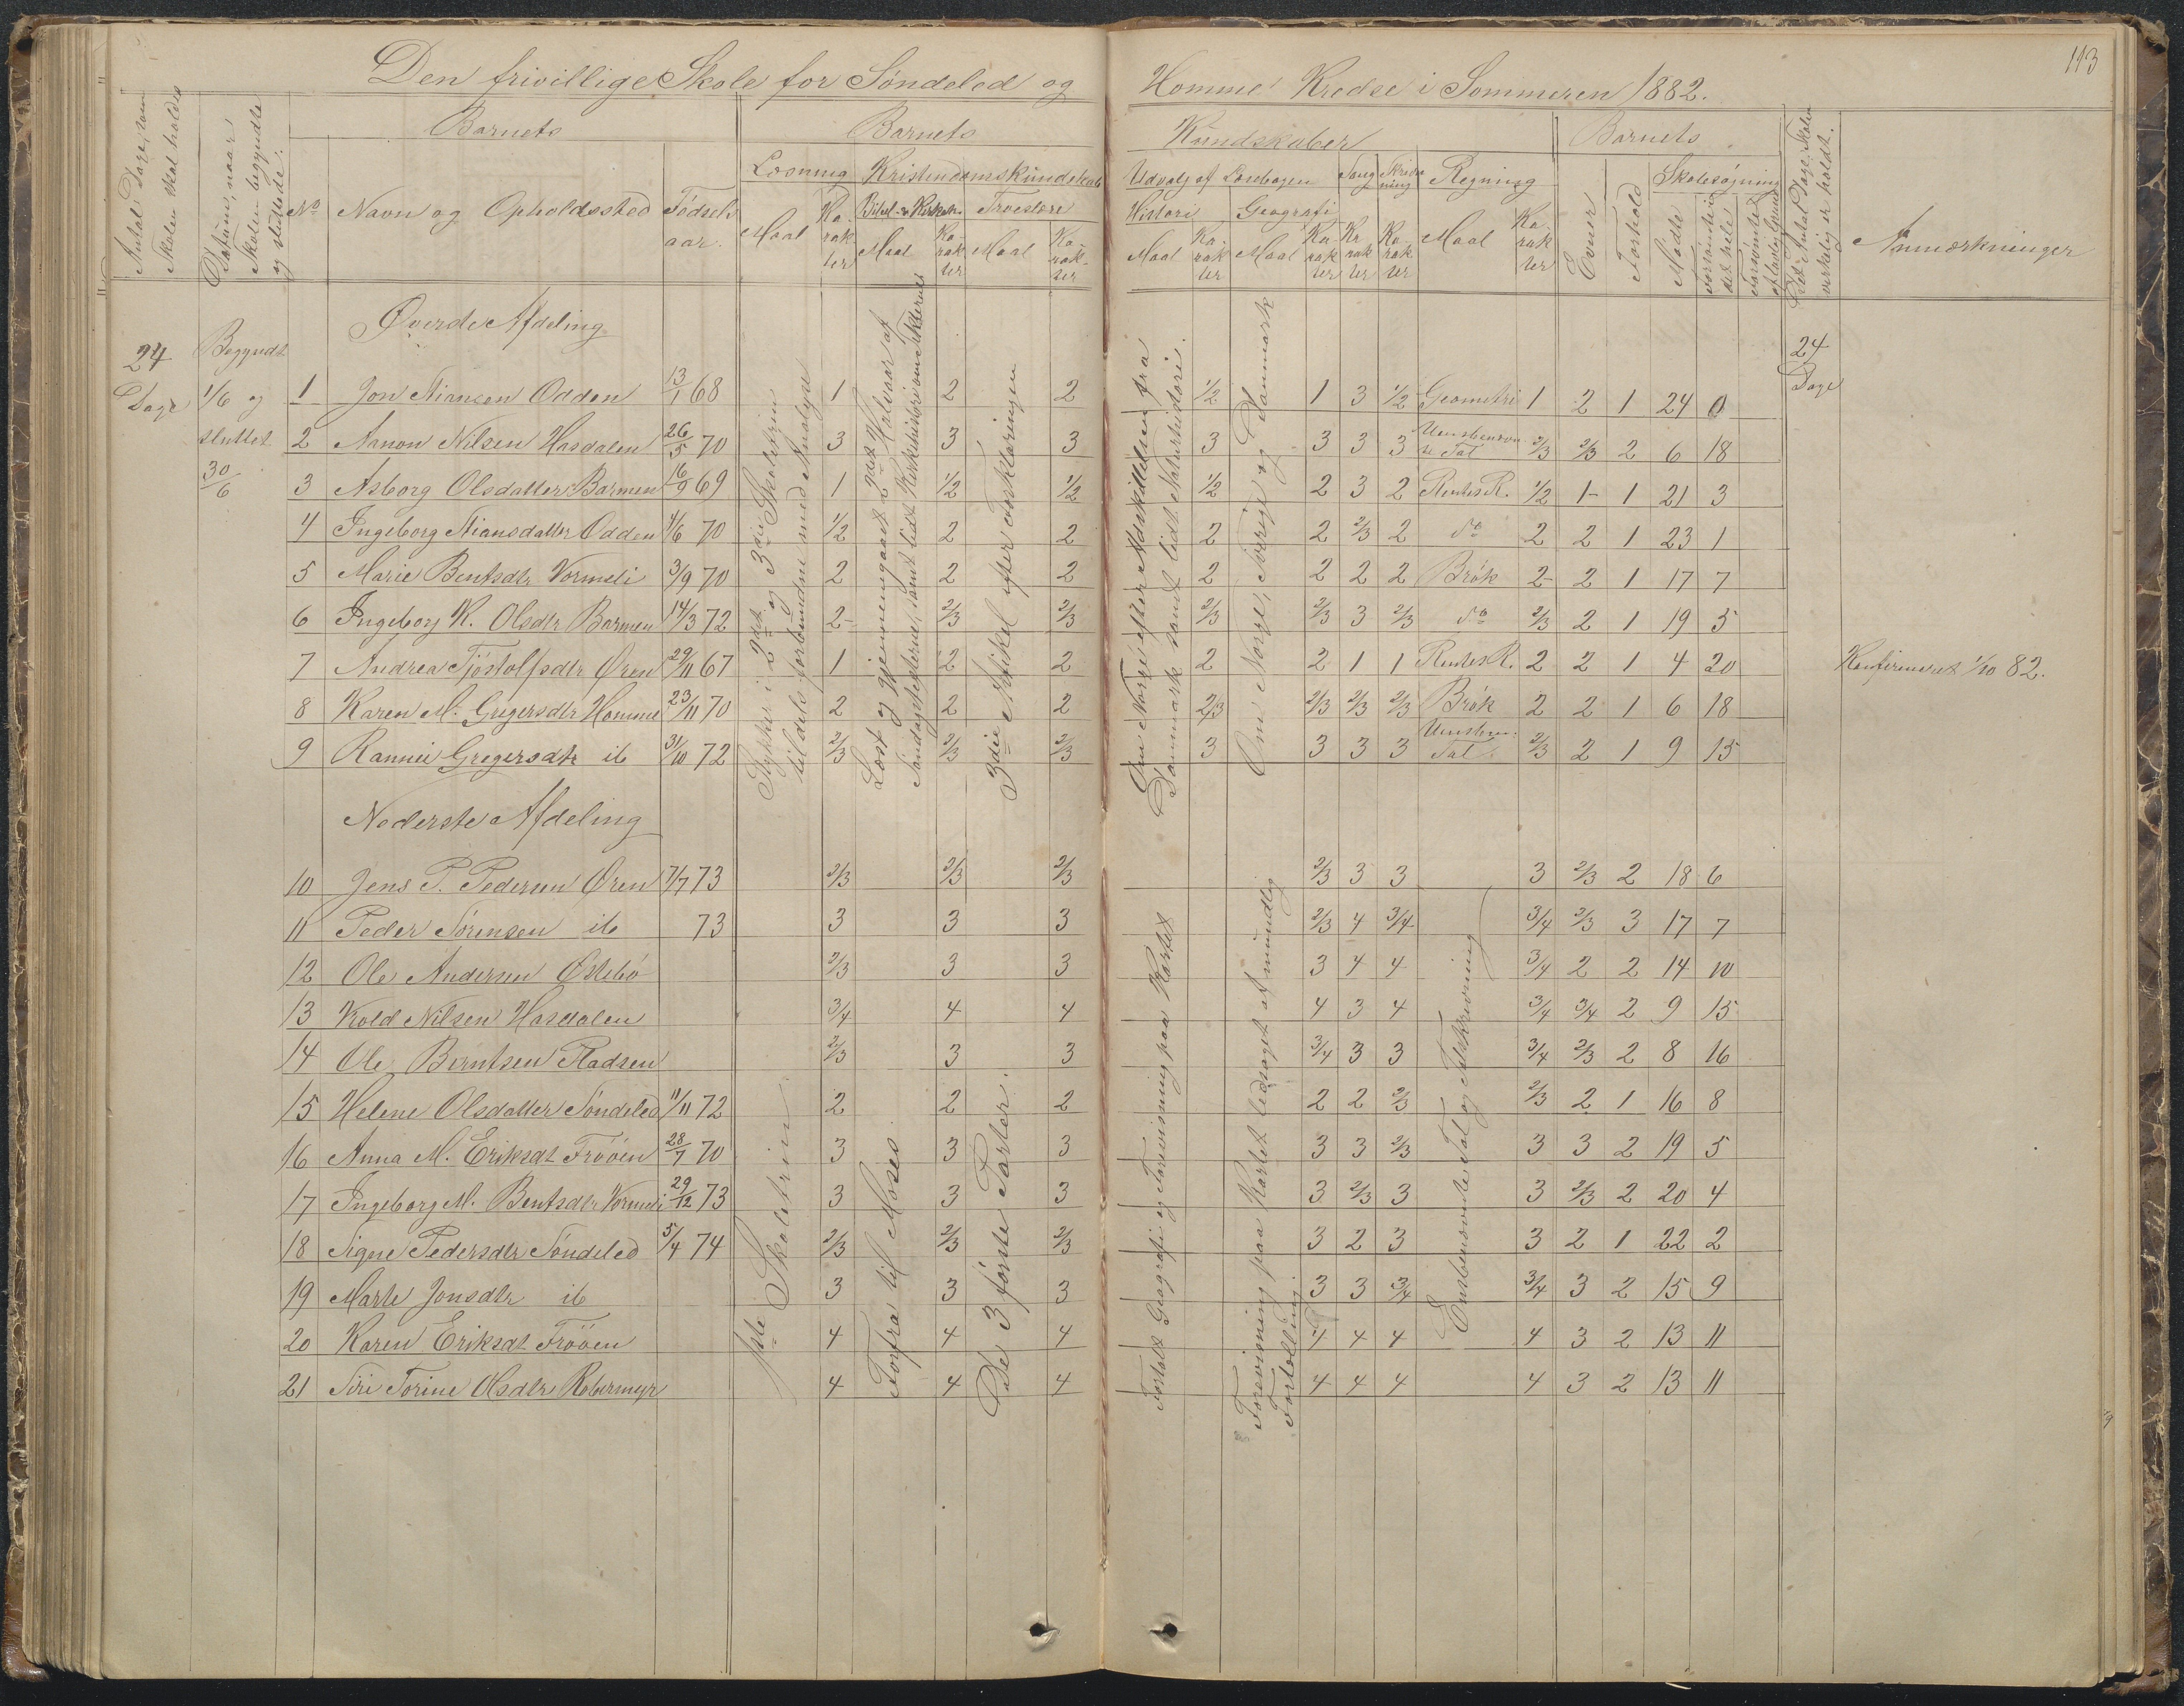 113
Den frivillige Skole for Søndeled og Homme Kredse i Sommeren 1882.
Antal Dage, som Skolen skal holdes
Datum, naar Skolen begyndte og sluttede.
Barnets
No
Navn og Opholdssted
Fødsels aar.
Barnets Kundskaber
Læsning
Maal
Karakter
Kristendomskundskab
Bibel- og Kirkeh.
Maal
Karakter
Troeslære
Maal
Karakter
Udvalg af Læsebogen
Histori
Maal
Karakter
Geografi
Maal
Karakter
Sang
Karakter
Skrivning
Karakter
Regning
Maal
Karakter
Barnets
Evner
Forhold
Skolesøgning
Mødte
forsømte i det hele
forsømte af lovlig Grund
Det Antal Dage, Skolen virkelig er holdt.
Anmærkninger
24 Dage
Begyndt 1/6 og sluttet 30/6
24 Dage
Øverste Afdeling
1 Jon Stiansen Odden 13/1 68 1 2 2 1/2 1 3 1/2 Geometri 1 2 1 24 0
2 Aanon Nilsen Hasdalen 26/5 70 3 3 3 3 3 3 3 Uensbenævnte Tal 2/3 2/3 2 6 18
3 Asborg Olsdatter Barmen 16/9 69 1 1/2 1/2 1/2 2 3 2 RentesR. 1/2 1- 1 21 3
4 Ingeborg Stiansdatter Odden 4/6 70 1/2 2 2 2 2 2/3 2 do 2 2 1 23 1
5 Marie Bentsdtr Vormeli 3/9 70 2 2 2 2 2 2 2 Brøk 2- 2 1 17 7
6 Ingeborg K. Olsdtr Barmen 14/3 72 2- 2/3 2/3 2/3 2/3 3 2/3 do 2/3 2 1 19 5
7 Andrea Tjöstolfsdtr Øren 29/11 67 1 2 2 2 2 1 1 RentesR. 2 2 1 4 20 Konfirmeret 1/10 82.
8 Karen M. Gregersdtr Homme 23/11 70 2 2 2 2/3 2/3 2/3 2/3 Brøk 2 2 1 6 18
9 Rannei Gregersdtr ib 31/10 72 2/3 2/3 2/3 3 3 3 3 Uensben. Tal 2/3 2 1 9 15
Stykker i 2det og 3die Skoletrin tildels forbundne med Analyse
Læst og gjennemgaaet 2det Halvaar af Søndagstexterne, samt lidt Kirkehistorie om Sekterne
3die Artikel efter Forklaringen
Om Norge efter Adskillelsen fra Danmark samt lidt Naturhistori.
Om Norge, Sverige og Danmark
Nederste Afdeling
10 Jens P. Pedersen Øren 7/7 73 2/3 2/3 2/3 2/3 3 3 3 2/3 2 18 6
11 Peder Sørensen ib 73 3 3 3 2/3 4 3/4 3/4 2/3 3 17 7
12 Ole Andersen Østebö 2/3 3 3 3 4 4 3/4 2 2 14 10
13 Kold Nilsen Hasdalen 3/4 4 4 4 3 4 3/4 3/4 2 9 15
14 Ole Berntsen Pladsen 2/3 3 3 3/4 3 3 3/4 2/3 2 8 16
15 Helene Olsdatter Søndeled 11/11 72 2 2 2 2 2 2/3 2/3 2 1 16 8
16 Anna M. Eriksdt Fröøen 28/7 70 3 3 3 3 3 2/3 3 3 2 19 5
17 Ingeborg M. Bentsdtr Vormeli 29/12 73 3 3 3 3 2/3 3 3 2/3 2 20 4
18 Signe Pedersdtr Søndeled 5/4 74 2/3 2/3 2/3 3 2 3 3 2 1 22 2
19 Marte Jonsdtr ib 3 3 3 3 3 3/4 3/4 3 2 15 9
20 Karen Eriksdt Fröøen 4 4 4 4 4 4 4 3 2 13 11
21 Siri Torine Olsdtr 4 4 4 4 4 4 4 3 2 13 11
1ste Skoletrin.
Forfra til Moses
De 3 første Parter.
Fortalt Geografi og Forevisning paa Kartet
Forevisning paa Kartet ledsaget af mundlig Fortælling.
Ensbenævnte Tal og Talskrivning